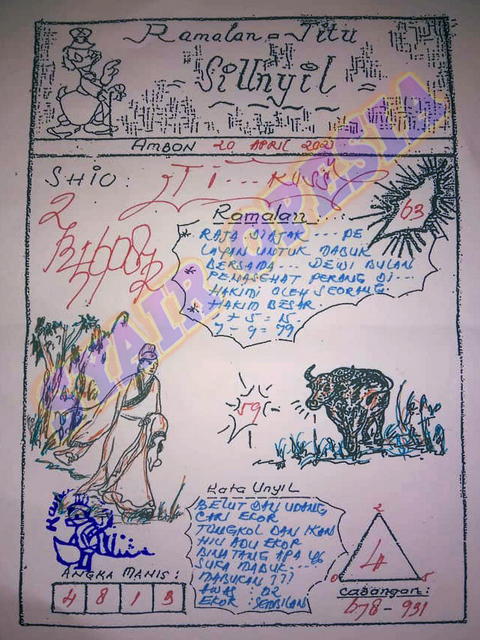 Ramalan = Titu
SiUnyil
AMBON 20 APRIL 202
SHIO:
2
63
Ramalan
* RAJA DIAJAK .... PE
LAYAN UNTUK MABUK
BERSAMA ... DEWI BULAN
* PENASEHAT PERANG DI ..
HAKIMI OLEH SEORANG
* HAKIM BESAR
+ 5 = 15
7 - 9 = 79
SYAIR OPESIA
59
Kata Unyil
BELUT DAN UDANG
CARI EKOR
TONGKOL DAN IKAN
HIU ADU EKOR
BINATANG APA YG
SUKA MABUK ...
MABUKAN ???
AWAS : 02
EKOR : SEMBILAN
ANGKA MANIS :
4 8 1 3
2
4
0 5
Cadangan:
678 - 931